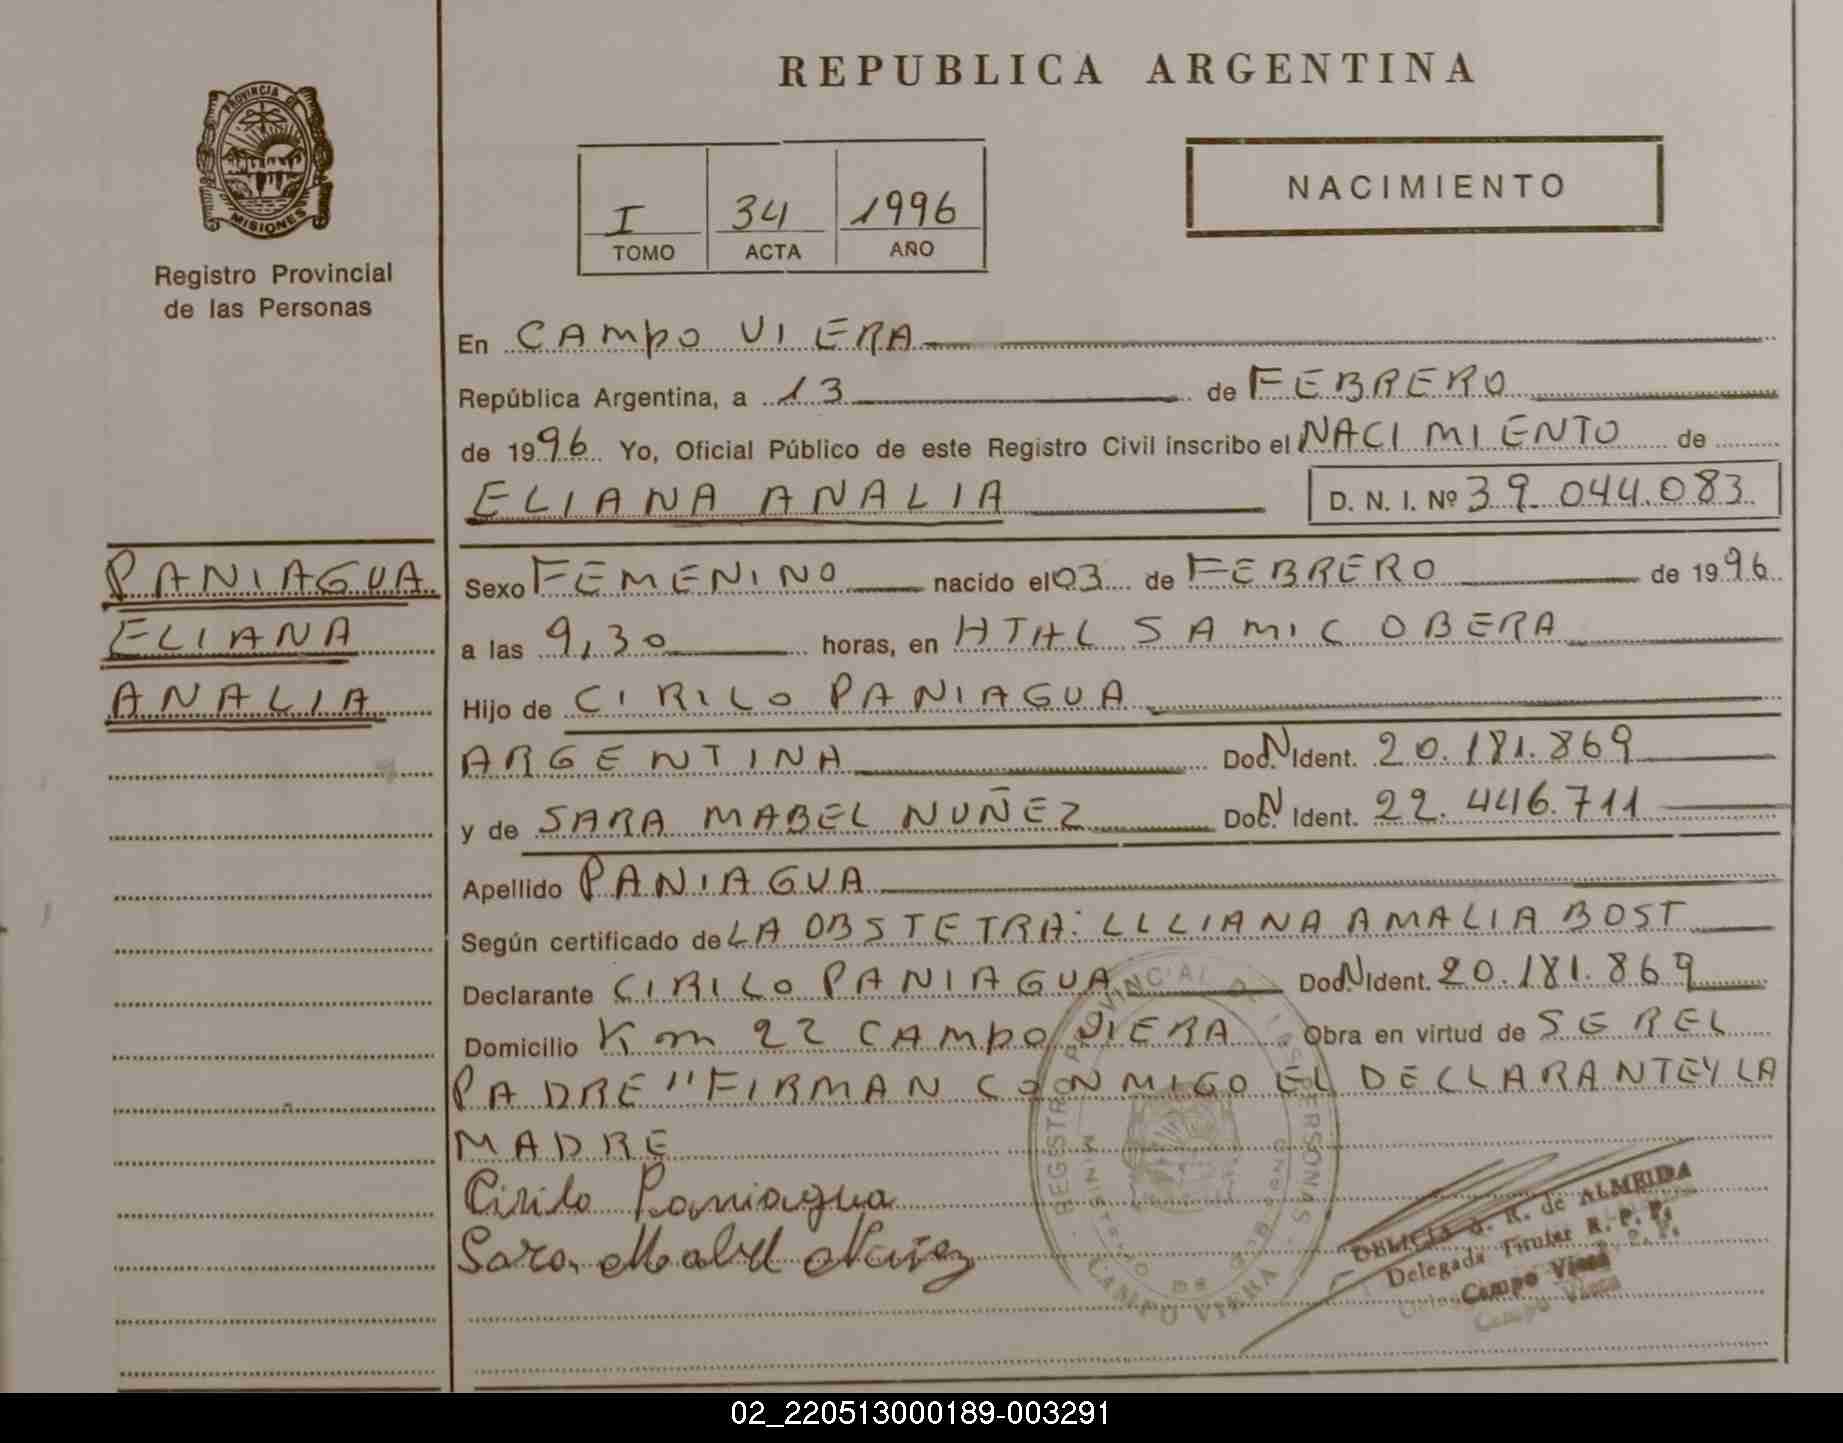 REPUBLICA ARGENTINA
PROVINCIA DE
MISIONES
Registro Provincial
de las Personas
I 34 1996
TOMO ACTA AÑO
NACIMIENTO
En CAMPO VIERA
República Argentina, a 13 de FEBRERO
de 1996 Yo, Oficial Público de este Registro Civil inscribo el NACIMIENTO de
ELIANA ANALIA D. N. I. Nº 39.044.083
PANIAGUA
ELIANA
ANALIA
Sexo FEMENINO nacido el 03 de FEBRERO de 1996
a las 9,30 horas, en HTAL SAMIC OBERA
Hijo de CIRILO PANIAGUA
ARGENTINA Doc. N Ident. 20.181.869
y de SARA MABEL NUÑEZ Doc. N Ident. 22.446.711
Apellido PANIAGUA
Según certificado de LA OBSTETRA: LLLIANA AMALIA BOST
Declarante CIRILO PANIAGUA Doc. N Ident. 20.181.869
Domicilio Km 22 CAMPO VIERA Obra en virtud de SEREL
PADRE" FIRMAN CONMIGO EL DECLARANTE Y LA
MADRE
Cirilo Paniagua
Sara Mabel Nuñez
REGISTRO PROVINCIAL DE LAS PERSONAS
MINISTERIO DE GOB
CAMPO VIERA
DELICIA R. de ALMEIDA
Delegada Titular R. P. P.
Campo Viera
Campo Viera
02_220513000189-003291